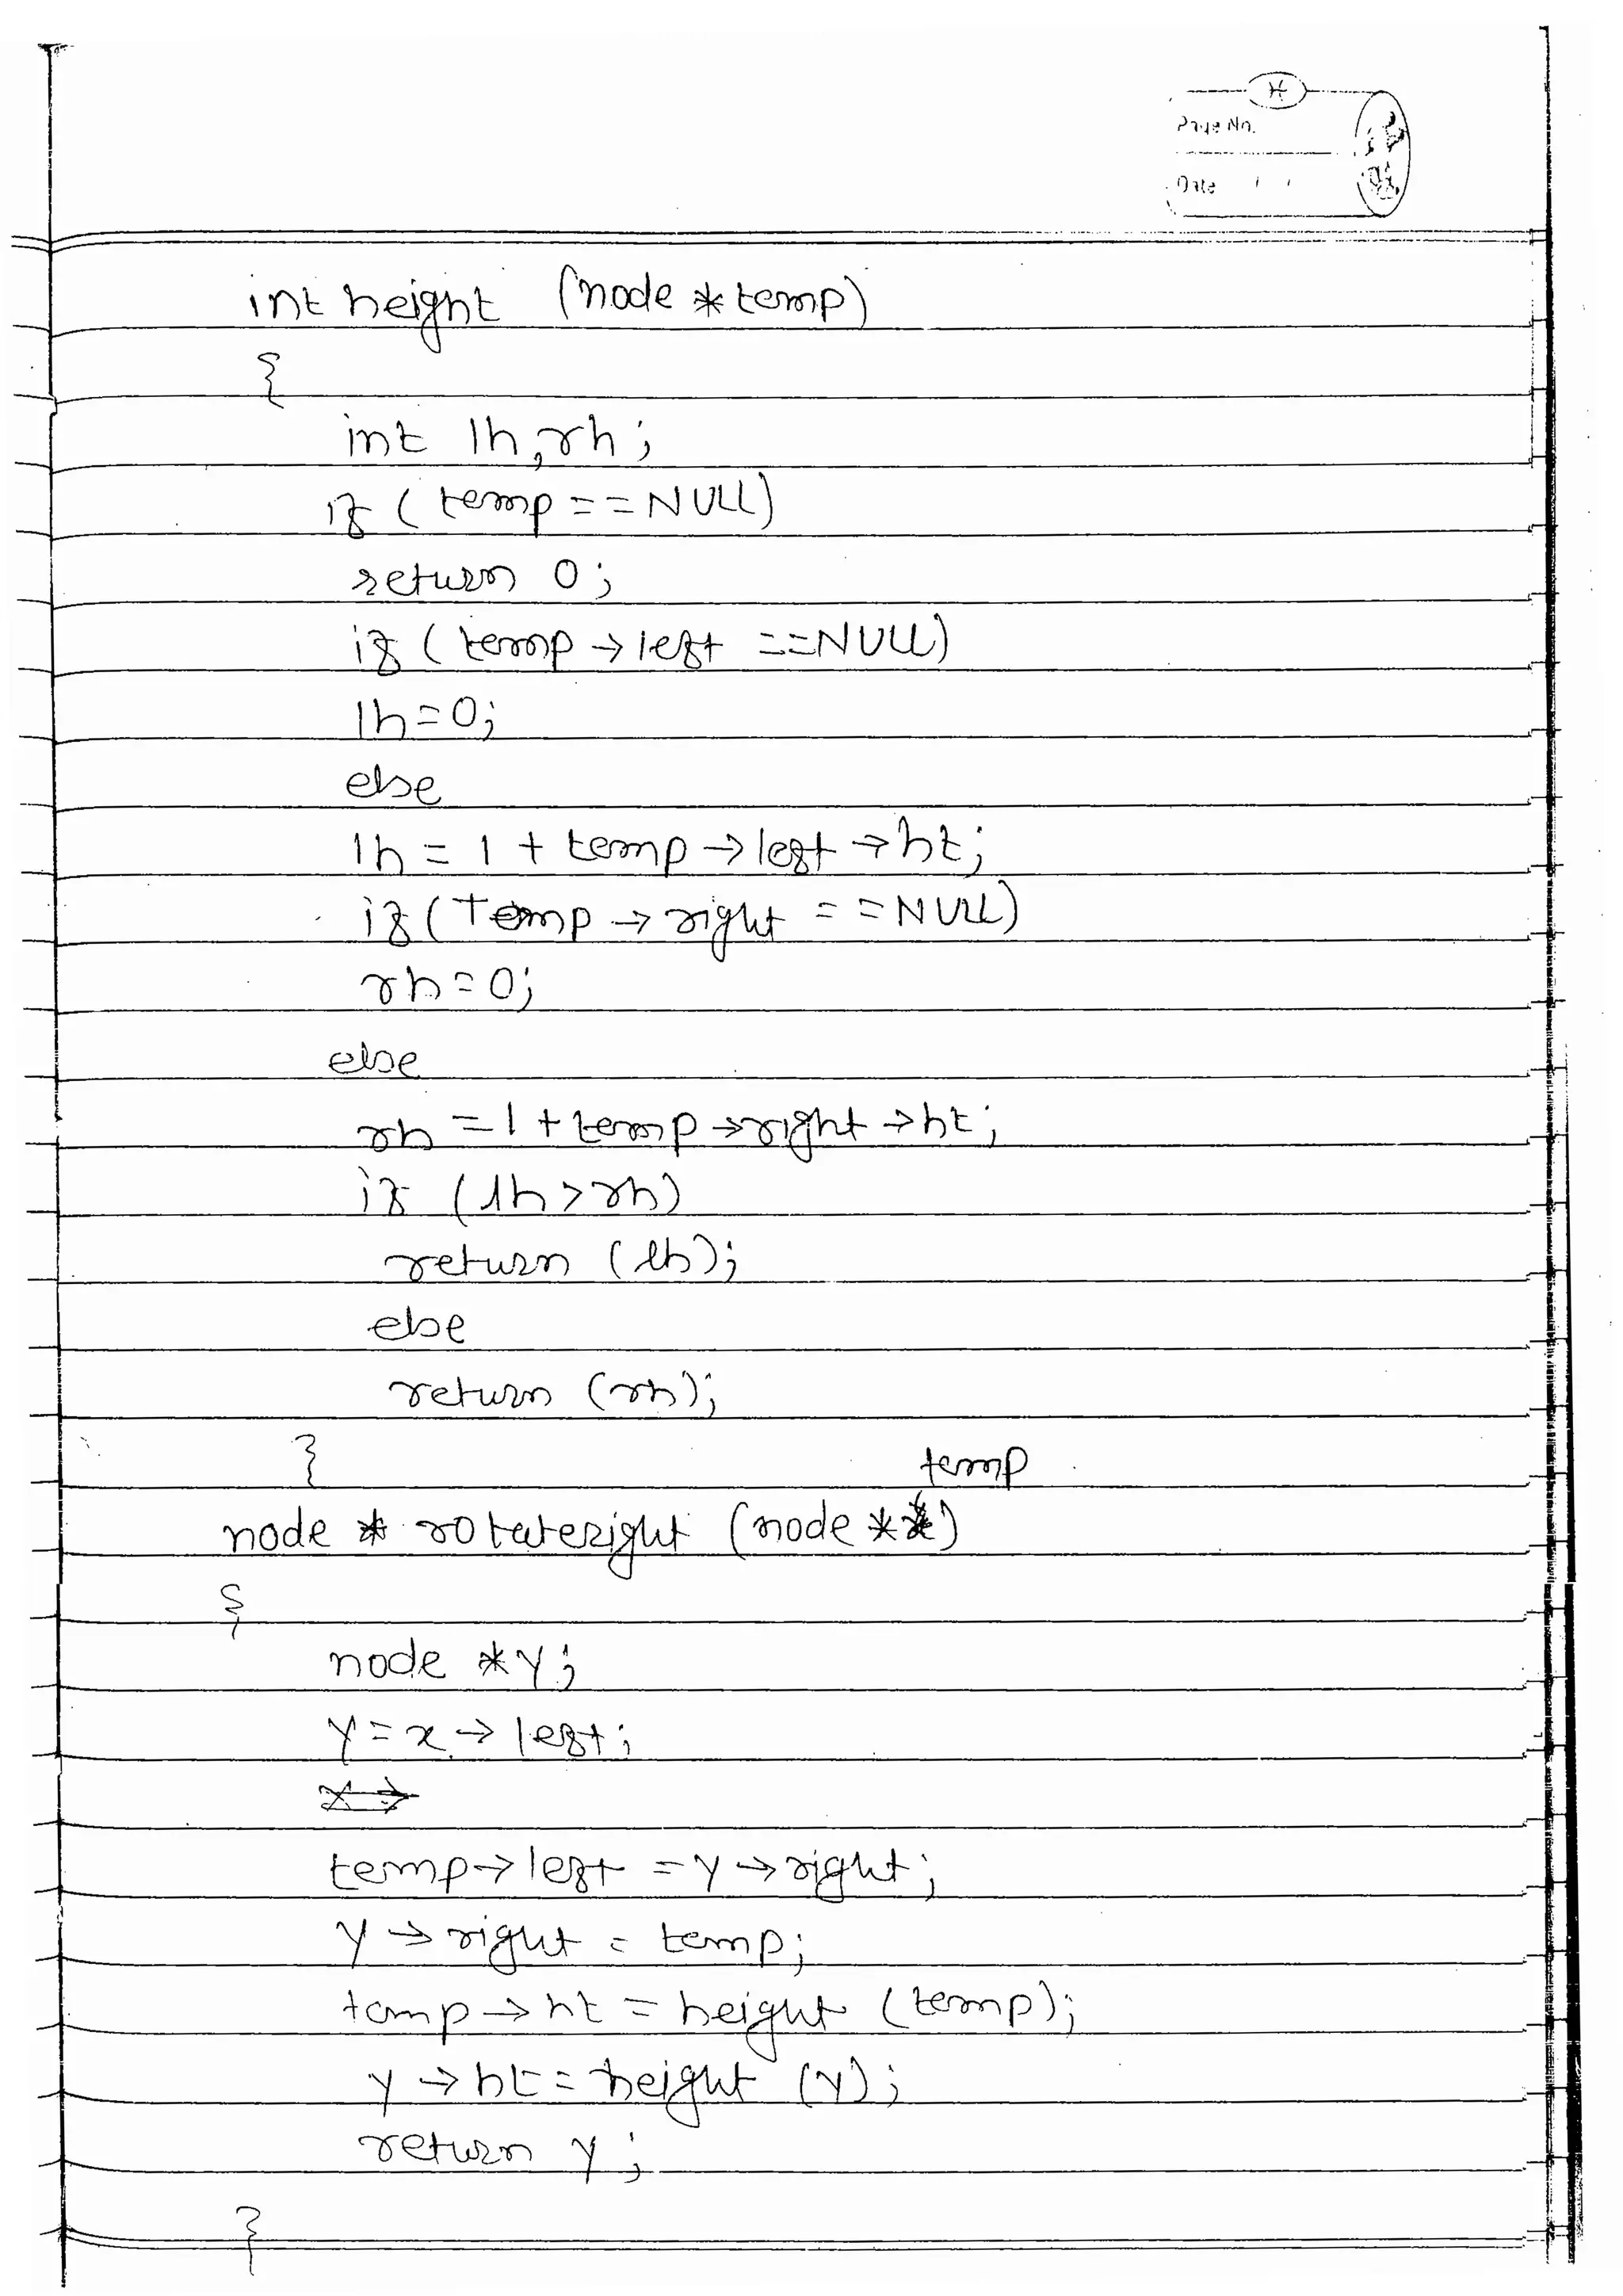 Page No.
Date / /
int height (node * temp)
{
int lh, rh;
if (temp == NULL)
return 0;
if (temp → left == NULL)
lh = 0;
else
lh = 1 + temp → left → ht;
if (Temp → right == NULL)
rh = 0;
else
rh = 1 + temp → right → ht;
if (lh > rh)
return (lh);
else
return (rh);
}
temp
node * rotateright (node * x)
{
node * y;
y = x → left;
x →
temp → left = y → right;
y → right = temp;
temp → ht = height (temp);
y → ht = height (y);
return y;
}